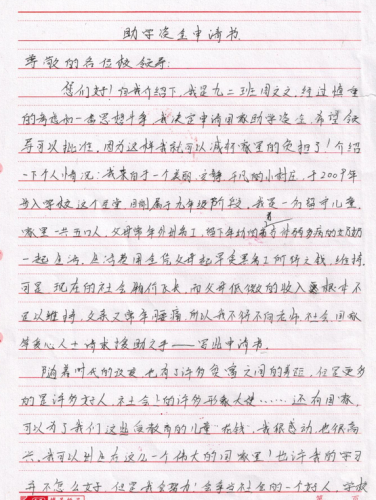 助学资金申请书
尊敬的各位校领导:
您们好!自我介绍下,我是九二班周文文,经过慎重
的考虑和一番思想斗争,我决定申请国家助学资金,希望领
导可以批准,因为这样我就可以减轻家里的负担了!介绍
一下个人情况:我来自于一个美丽、文静、平凡的小村庄,于2009年
步入学校这个主堂,目前属于九年级阶段,我是一名留守儿童
家里一共五口人,父母常年外出务工,留下年幼的 着体弱多病的爷奶
一起生活,生活费用全凭父母起早贪黑务工所得之钱,维持
可是,现在的社会物价飞长,而父母低微的收入 根本不
足以维持,父亲又常年腰痛,所以我不得不向老师、社会、国家
等爱心人士请求援助之手——写此申请书。
随着时代的改变,也有了许多贫富之间的差距,但是更多
的是许多好人,社会上的许多形象大使……还有国家,
可以为了我们这些受教育的儿童“花钱”,我很感动,也很高
兴,我可以出生在这么一个伟大的国家里!也许我的学习
并不怎么好,但是我会努力!会争当社会的一个好人,学校
第 页